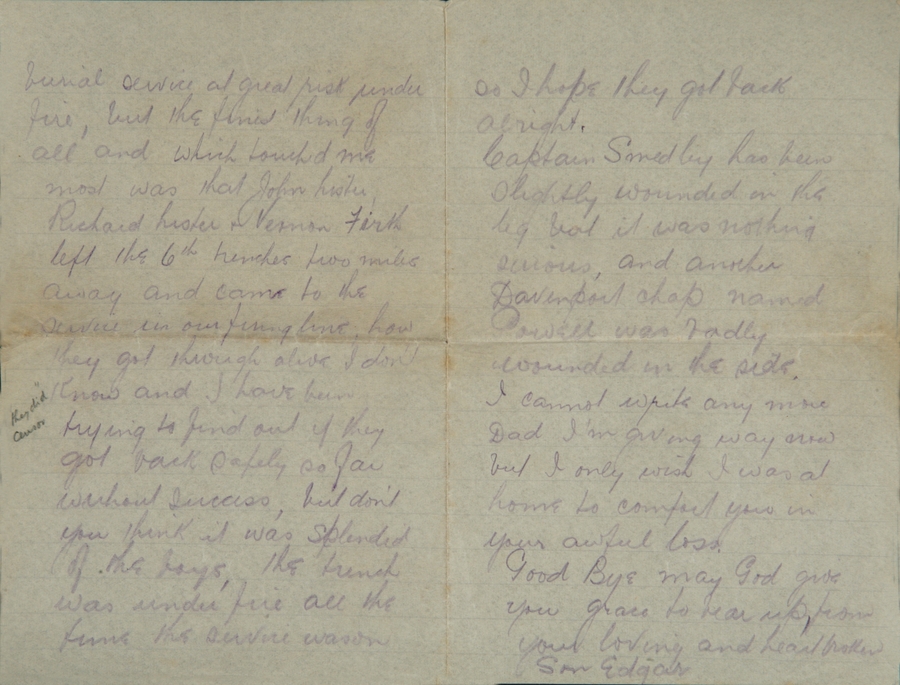 burial service at great risk under
fire, but the finest thing of
all and which touched me
most was that John Lister,
Richard Lister & Vernon Firth
left the 6th trenches two miles
away and came to the
service in our firing line, how
they got through alive I don't
know and I have been
trying to find out if they
got back safely so far
without success, but don't
you think it was splendid
of the boys, the trench
was under fire all the
time the service was on
"they did"
Censor
so I hope they got back
alright.
Captain Smedley has been
slightly wounded in the
leg but it was nothing
serious, and another
Davenport chap named
Powell was badly
wounded in the side.
I cannot write any more
Dad I'm giving way now
but I only wish I was at
home to comfort you in
your awful loss.
Good Bye may God give
you grace to bear up, from
your loving and heartbroken
Son Edgar